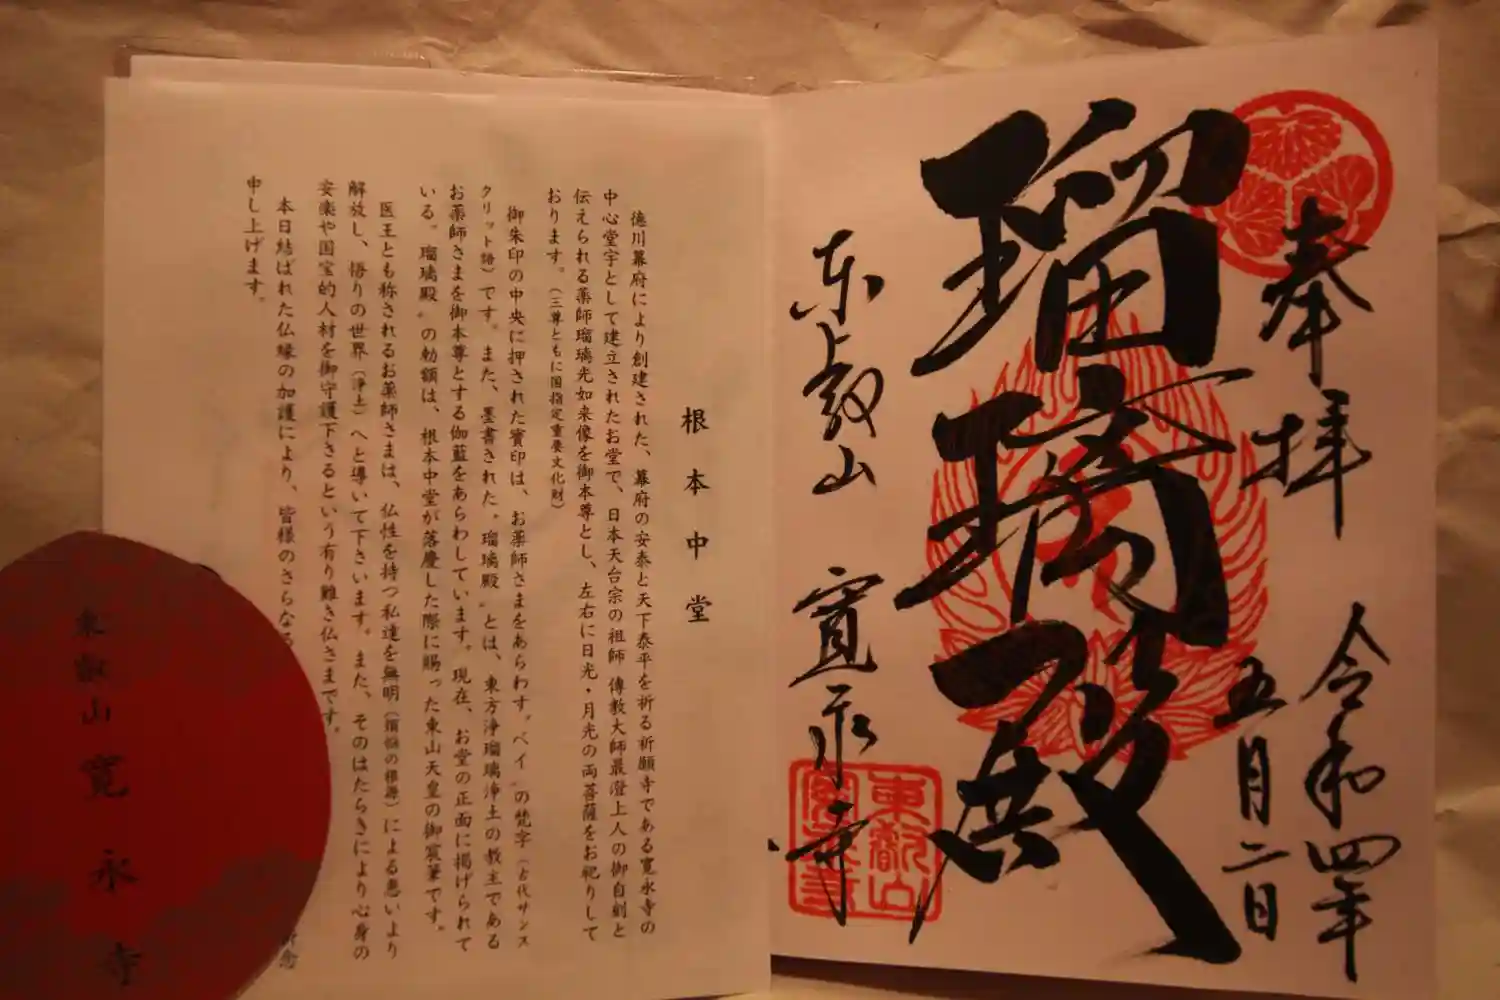 奉拝
令和四年
五月二日
瑠璃殿
東叡山 寛永寺
東叡山
根本中堂
徳川幕府により創建された、幕府の安泰と天下泰平を祈る祈願寺である寛永寺の
中心堂宇として建立されたお堂で、日本天台宗の祖師 傳教大師最澄上人の御自刻と
伝えられる薬師瑠璃光如来像を御本尊とし、左右に日光・月光の両菩薩をお祀りして
おります。(三尊ともに国指定重要文化財)
御朱印の中央に押された寶印は、お薬師さまをあらわす〝ベイ〟の梵字(古代サンス
クリット語)です。また、墨書された〝瑠璃殿〟とは、東方浄瑠璃浄土の教主である
お薬師さまを御本尊とする伽藍をあらわしています。現在、お堂の正面に掲げられて
いる〝瑠璃殿〟の勅額は、根本中堂が落慶した際に賜った東山天皇の御宸筆です。
医王とも称されるお薬師さまは、仏性を持つ私達を無明(煩悩の根源)による悪いより
解放し、悟りの世界(浄土)へと導いて下さいます。また、そのはたらきにより心身の
安楽や国宝的人材を御守護下さるという有り難き仏さまです。
本日結ばれた仏縁の加護により、皆様のさらなる
祈念
申し上げます。
東叡山 寛永寺